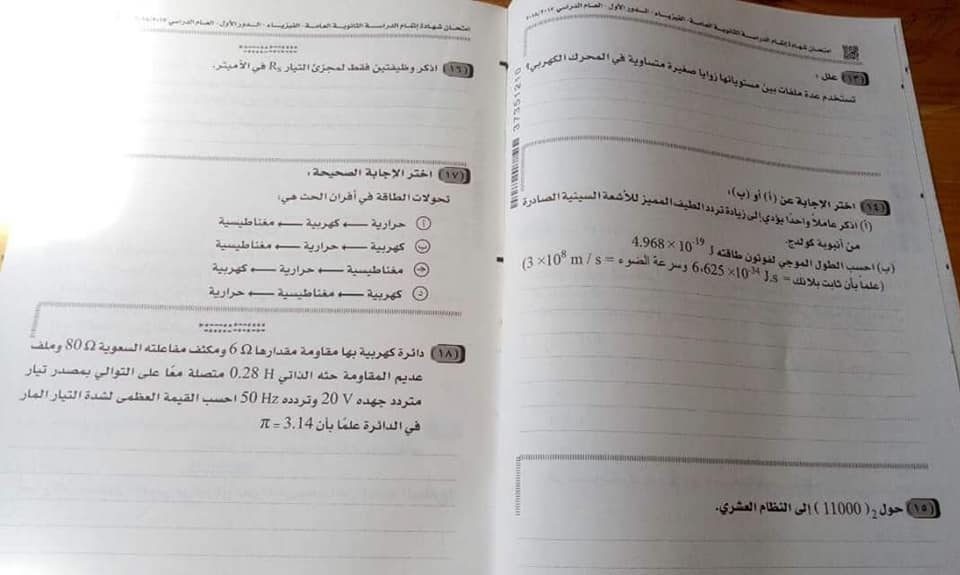 امتحان شهادة إتمام الدراسة الثانوية العامة - الفيزياء - الدور الأول - العام الدراسي ٢٠١٨/٢٠١٧
(١٣) علل :
تستخدم عدة ملفات بين مستوياتها زوايا صغيرة متساوية في المحرك الكهربي؟
37351210
(١٤) اختر الإجابة عن (أ) أو (ب):
(أ) اذكر عاملاً واحدًا يؤدي إلى زيادة تردد الطيف المميز للأشعة السينية الصادرة
من أنبوبة كولدج.
(ب) احسب الطول الموجي لفوتون طاقته 4.968 × 10⁻¹⁹ J
(علما بأن ثابت بلانك = 6,625 ×10⁻³⁴ J.s وسرعة الضوء = 3 ×10⁸ m / s)
(١٥) حول ₂( 11000 ) إلى النظام العشري.
امتحان شهادة إتمام الدراسة الثانوية العامة - الفيزياء - الدور الأول - العام الدراسي ٢٠١٨/٢٠١٧
(١٦) اذكر وظيفتين فقط لمجزئ التيار Rs في الأميتر.
(١٧) اختر الإجابة الصحيحة :
تحولات الطاقة في أفران الحث هي:
أ حرارية ← كهربية ← مغناطيسية
ب كهربية ← حرارية ← مغناطيسية
جـ مغناطيسية ← حرارية ← كهربية
د كهربية ← مغناطيسية ← حرارية
(١٨) دائرة كهربية بها مقاومة مقدارها 6 Ω ومكثف مفاعلته السعوية 80 Ω وملف
عديم المقاومة حثه الذاتي 0.28 H متصلة معًا على التوالي بمصدر تيار
متردد جهده 20 V وتردده 50 Hz احسب القيمة العظمى لشدة التيار المار
في الدائرة علمًا بأن π = 3.14